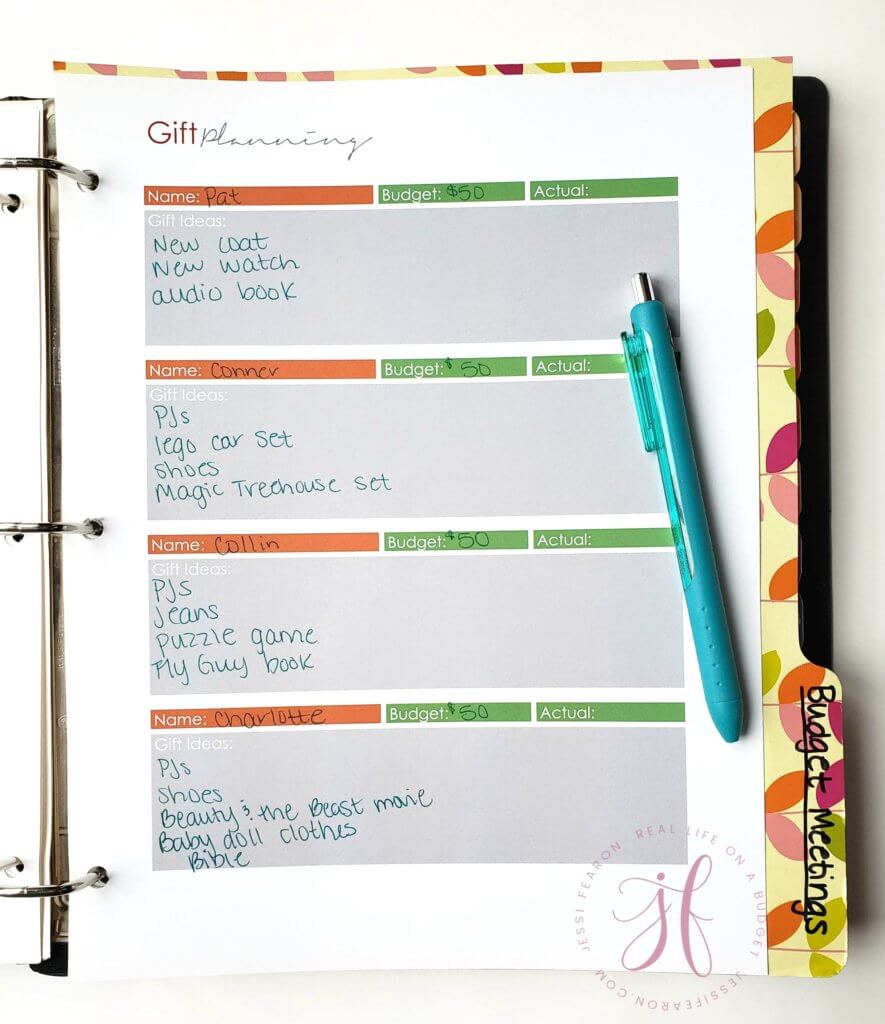 Gift Planning
Name: Pat Budget: $50 Actual:
Gift Ideas:
New coat
New watch
audio book
Name: Conner Budget: $50 Actual:
Gift Ideas:
PJs
lego car set
shoes
Magic Treehouse set
Name: Collin Budget: $50 Actual:
Gift Ideas:
PJs
jeans
puzzle game
Fly Guy book
Name: Charlotte Budget: $50 Actual:
Gift Ideas:
PJs
shoes
Beauty & the Beast movie
Baby doll clothes
Bible
Budget Meetings
JESSI FEARON REAL LIFE ON A BUDGET JESSIFEARON.COM
jf